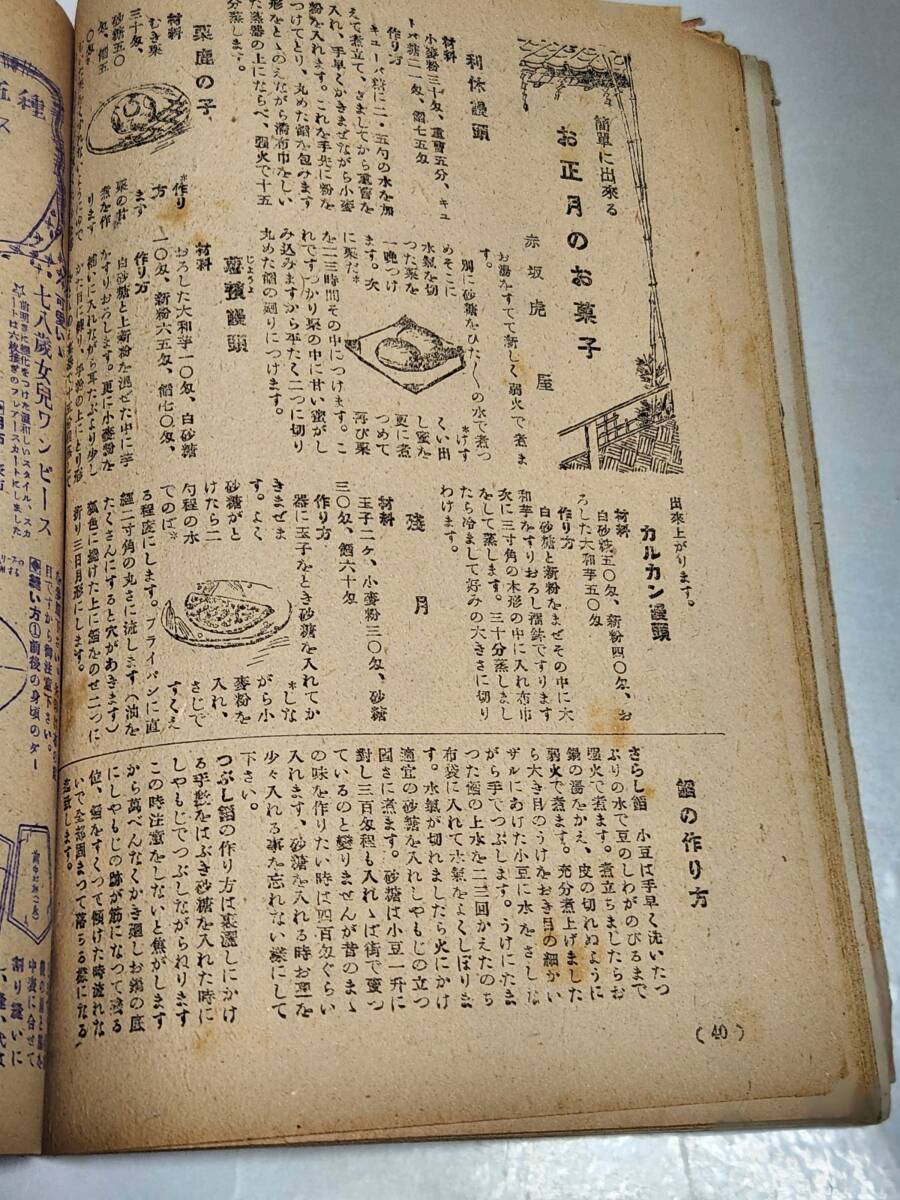 簡單に出來る
お正月のお菓子
赤坂虎屋
利休饅頭
材料
小麥粉三十匁、重曹五分、キュ
ーバ糖二一匁、餡七五匁
作り方
キューバ糖に二・五勺の水を加
えて煮立て、さましてから重曹を
入れ、手早くかきまぜながら小麥
粉を入れます。これを手先に粉を
つけてとり、丸めた餡を包みます
形をとゝのえながら濡布巾をしい
た蒸器の上にならべ、强火で十五
分蒸します。
栗鹿の子
材料
むき栗
三十匁、
砂糖五〇
匁、餡五
〇匁
作り
方
栗の甘
煮を作
ります
お湯をすてて新しく弱火で煮ま
す。
別に砂糖をひた〱の水で煮つ
めそこに
水氣を切
つた栗を
一晩つけ
ます。次
に栗だ*
*けす
くい出
し蜜を
更に煮
つめて
再び栗
を二三時間その中につけます。こ
れですつかり栗の中に甘い蜜がし
み込みますから平たく二つに切り
丸めた餡の廻りにつけます。
薯蕷饅頭
じょうよ
材料
おろした大和芋一〇匁、白砂糖
一〇匁、新粉六五匁、餡七〇匁、
作り方
白砂糖と上新粉を混ぜた中に芋
かすりおろします。更に小麥粉を
補いに入れながら耳たぶより少し
かた目に練り、手粉の上にとり形
出來上がります。
カルカン饅頭
材料
白砂糖五〇匁、新粉四〇匁、お
ろした大和芋五〇匁
作り方
白砂糖と新粉をまぜその中に大
和芋をすりおろし擂鉢ですります
次に三寸角の木形の中に入れ布巾
をして蒸します。三十分蒸しまし
たら冷まして好みの大きさに切り
わけます。
殘月
材料
玉子二ヶ、小麥粉三〇匁、砂糖
三〇匁、餡六十匁
作り方
器に玉子をとき砂糖を入れてか
きまぜま
す。よく
砂糖がと
けたら二
勺程の水
でのば*
*しな
がら小
麥粉を
入れ、
さじで
すくえ
る程度にします。フライパンに直
經二寸角の丸さに流します（油を
たくさんにすると穴があきます）
狐色に燒けた上に餡をのせ二つに
折り三日月形にします。
餡の作り方
さらし餡　小豆は手早く洗いたつ
ぷりの水で豆のしわがのびるまで
强火で煮ます。煮立ちましたらお
鍋の湯をかえ、皮の切れぬように
弱火で煮ます。充分煮上げました
ら大き目のうけをおき目の細かい
ザルにあけた小豆に水をさしな
がら手でつぶします。うけにたま
つた餡の上水を二三回かえたのち
布袋に入れて水氣をよくしぼりま
す。水氣が切れましたら火にかけ
適宜の砂糖を入れしやもじの立つ
固さに煮ます。砂糖は小豆一升に
對し三百匁程も入れゝば街で賣つ
ているのと變りませんが昔のまゝ
の味を作りたい時は四百匁ぐらい
入れます、砂糖を入れる時お鹽を
少々入れる事を忘れない樣にして
下さい。
つぶし餡の作り方は裏漉しにかけ
る手數をはぶき砂糖を入れた時に
しやもじでつぶしながらねります
この時注意をしないと焦がします
から萬べんなくかき廻しお鍋の底
にしやもじの跡が筋になつて殘る
位、餡をすくつて傾けた時流れな
いで全部固まつて落ちる樣になる
（40）
七八歲女兒ワンピース
縫い方①前後の身頃のダー
目ですから御注意下さい。